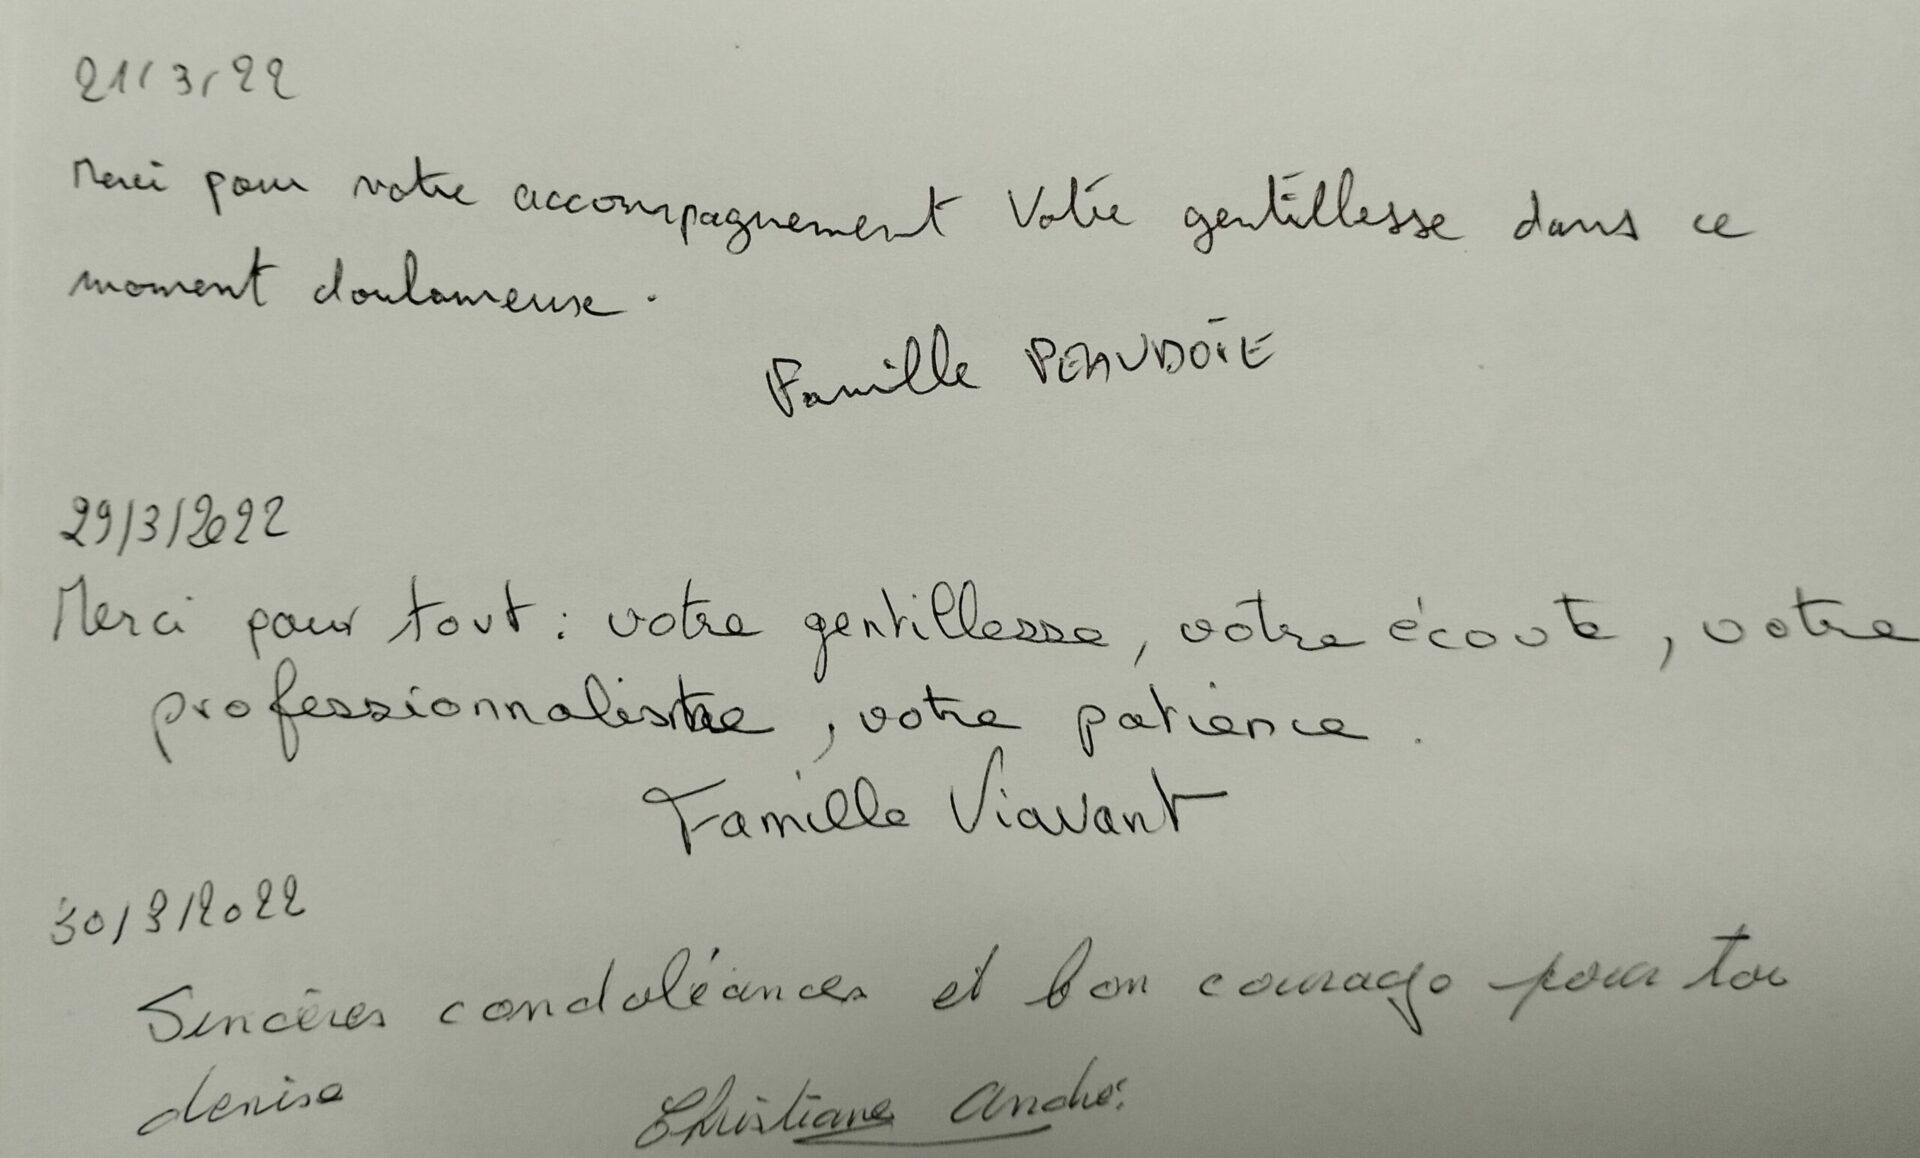 21/3/22
Merci pour votre accompagnement Votre gentillesse dans ce
moment douloureuse.
Famille PEAUDOIE
29/3/2022
Merci pour tout : votre gentillesse, votre écoute, votre
professionnalisme, votre patience.
Famille Viavant
30/3/2022
Sincères condoléances et bon courage pour toi
denise
Christiane André